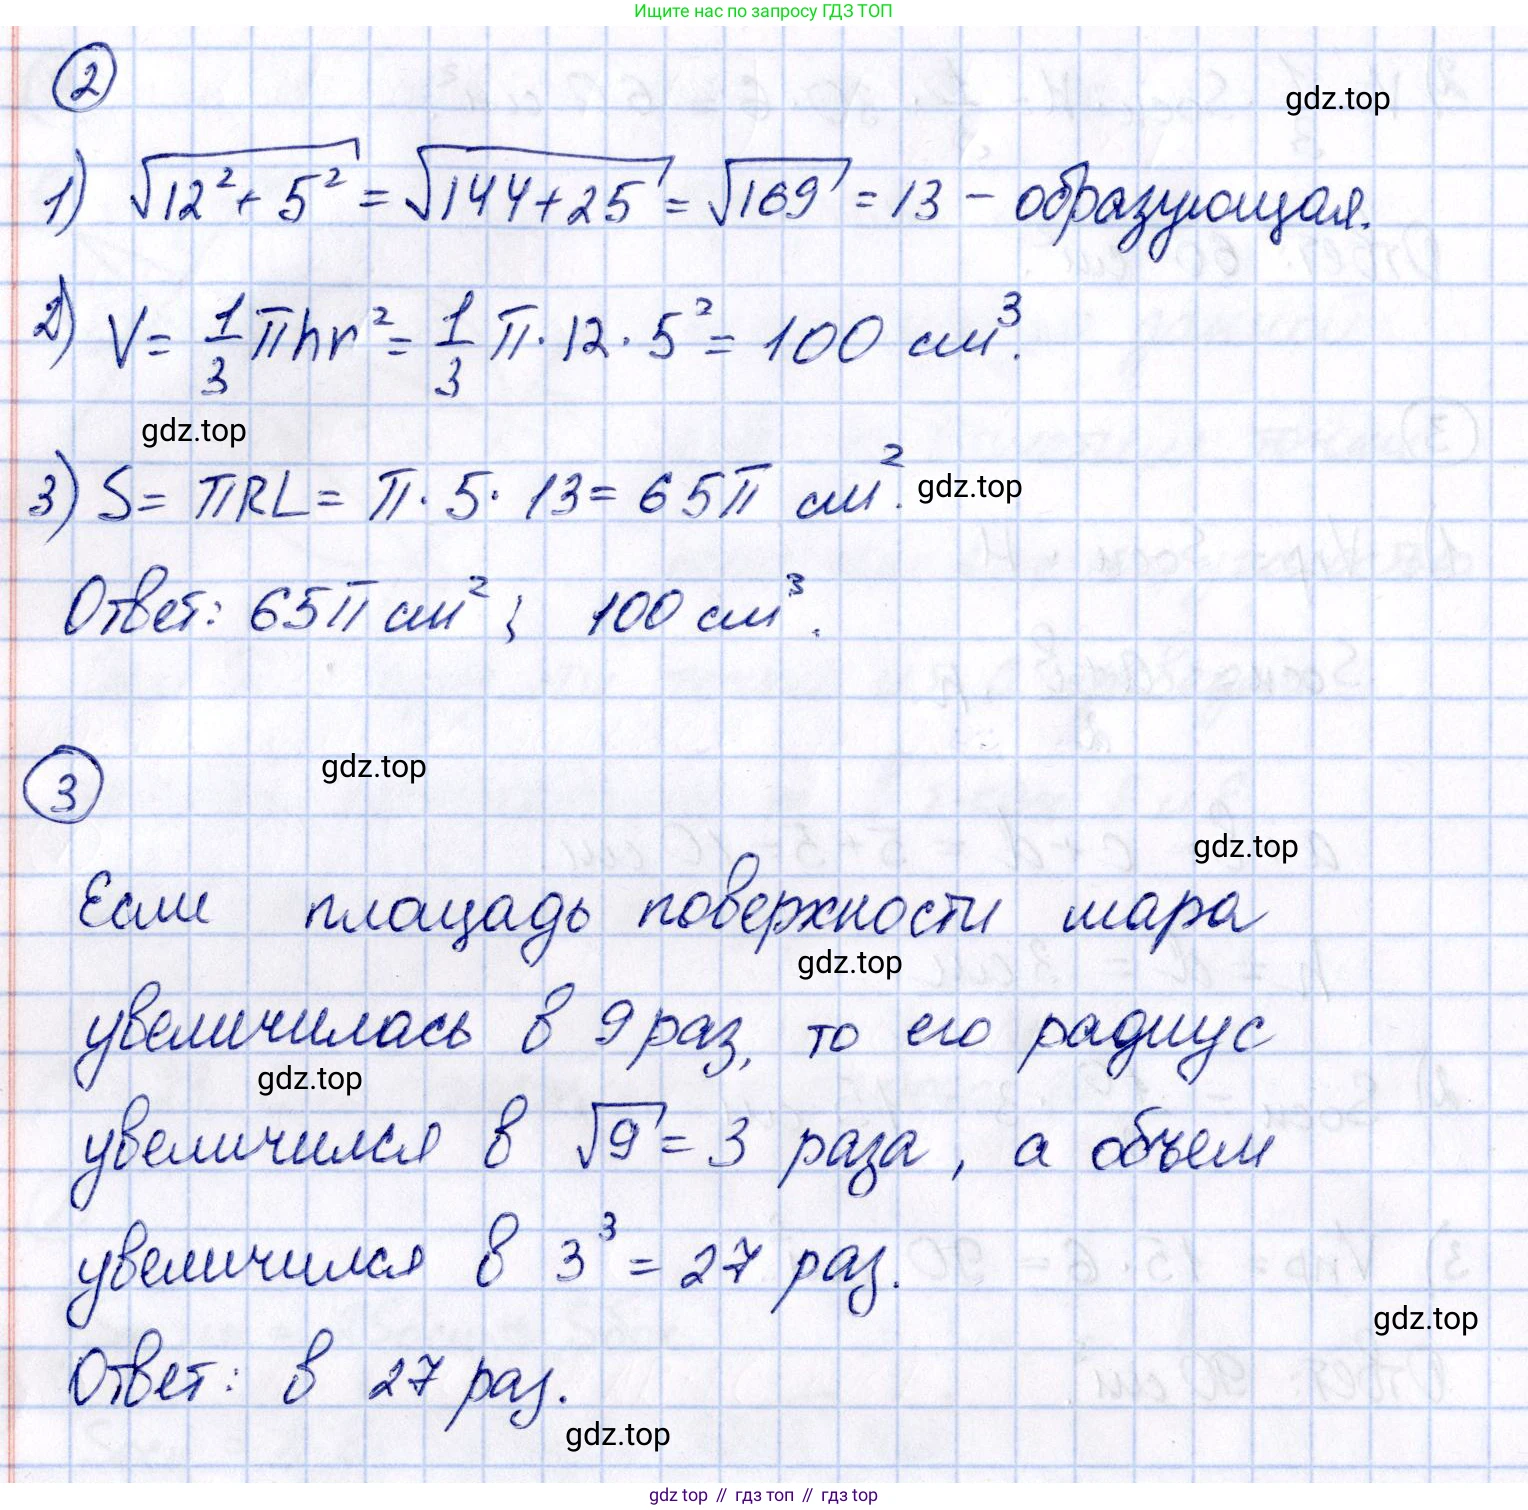 Ищите нас по запросу ГДЗ ТОП
2
gdz.top
1) √12² + 5² = √144 + 25 = √169 = 13 – образующая.
2) V = 1/3 πhr² = 1/3 π · 12 · 5² = 100 см³.
gdz.top
3) S = πRL = π · 5 · 13 = 65π см². gdz.top
Ответ: 65π см² ; 100 см³.
gdz.top
3
gdz.top
Если площадь поверхности шара
gdz.top
увеличилась в 9 раз, то его радиус
gdz.top
увеличился в √9 = 3 раза, а объем
увеличился в 3³ = 27 раз.
gdz.top
Ответ: в 27 раз.
gdz.top
gdz топ // гдз топ // гдз top